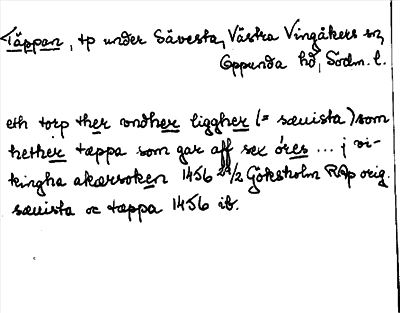 Täppan, tp under Sävesta, Västra Vingåkers sn,
Oppunda hd, Södm. l.
eth torp ther vndher liggher (= sæuista) som
hether tæppa som gar aff sex öres ... j vi-
kingha akærsoken 1456 24/2 Göksholm RAp orig.
sæuista oc tæppa 1456 ib.